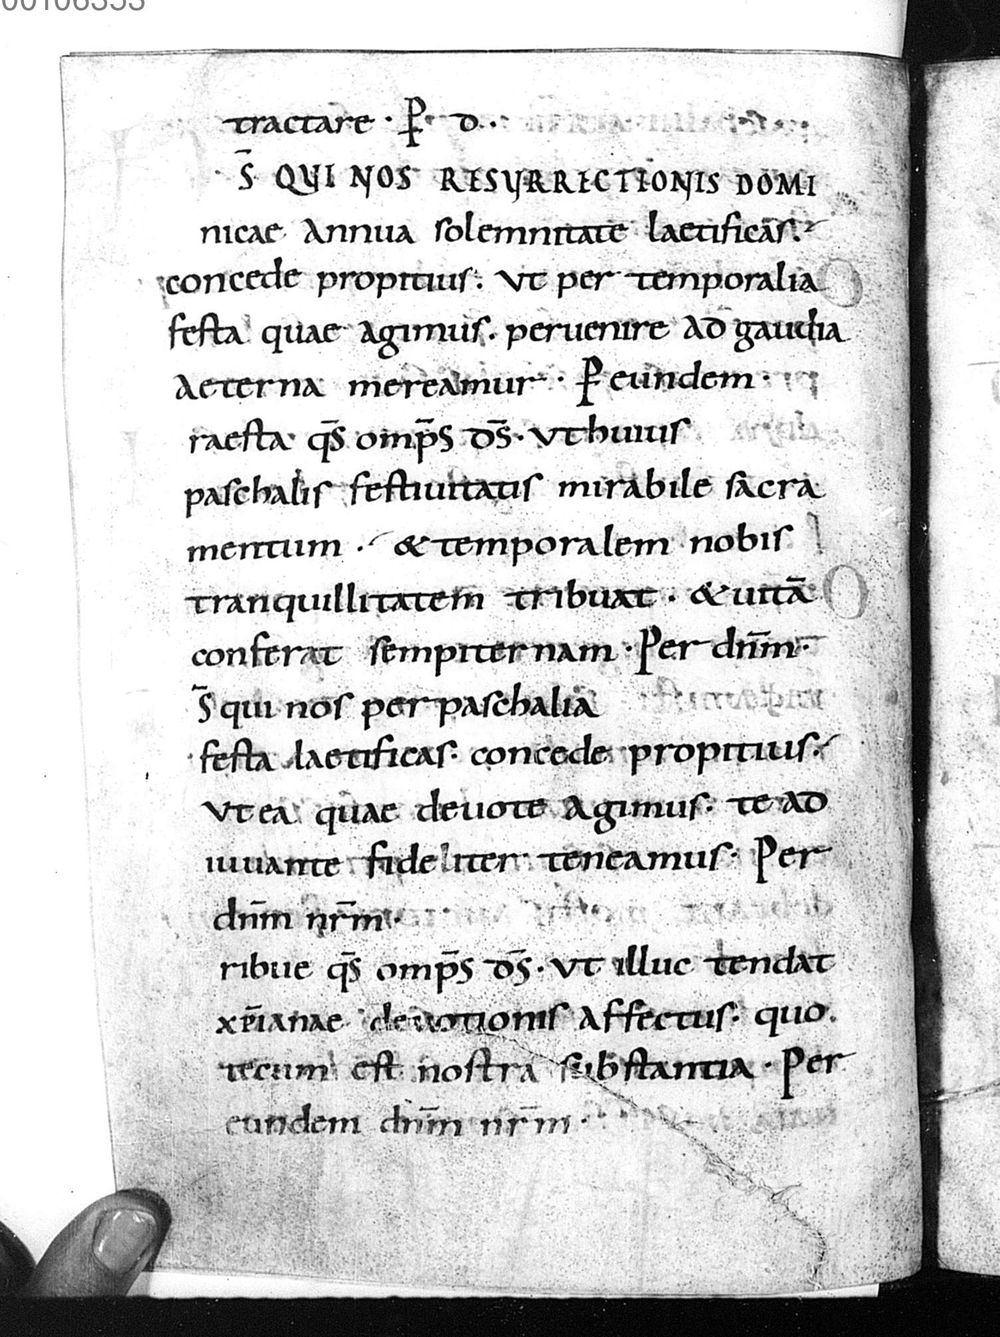 00106353
tractare · P̱ · d ··
S̄ QUI NOS RESURRECTIONIS DOMI
nicae annua solemnitate laetificas.
concede propitius. ut per temporalia
festa quae agimus. peruenire ad gaudia
aeterna mereamur · P̱ eundem ·
raesta q̄s omp̄s d̄s · ut huius
paschalis festiuitatis mirabile sacra
mentum · & temporalem nobis
tranquillitatem tribuat · & uitā
conferat sempiternam · Per dn̄m ·
S̄ qui nos per paschalia
festa laetificas · concede propitius
ut ea quae deuote agimus. te ad
iuuante fideliter teneamus · Per
dn̄m nr̄m ·
ribue q̄s omp̄s d̄s · ut illuc tendat
xp̄ianae deuotionis affectus · quo
tecum est nostra substantia · Per
eundem dn̄m nr̄m ·